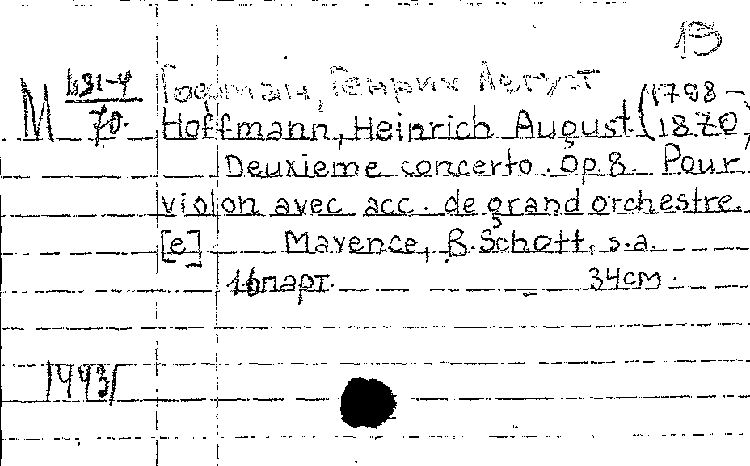 13
М 631-4/70. Гофман, Генрих Август
Hoffmann, Heinrich August (1798-1870)
Deuxieme concerto. Op. 8. Pour
violon avec acc. de grand orchestre.
[e] Mayence, B. Schott, s.a.
16 парт. 34 см.